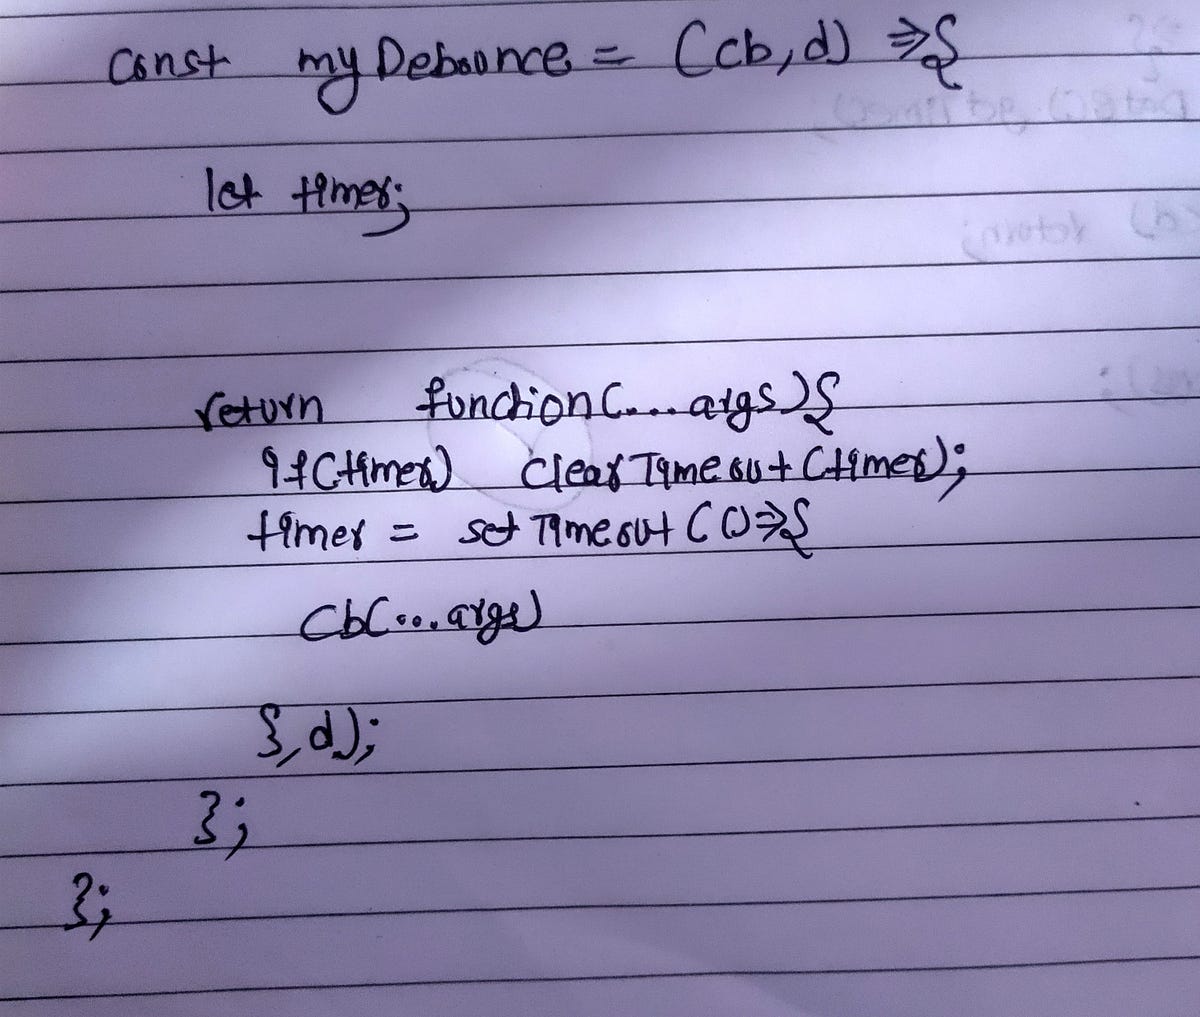 const myDebounce = (cb,d) => {
let timer;
return function(...args){
if(timer) clearTimeout(timer);
timer = setTimeout(()=>{
cb(...args)
},d);
};
};